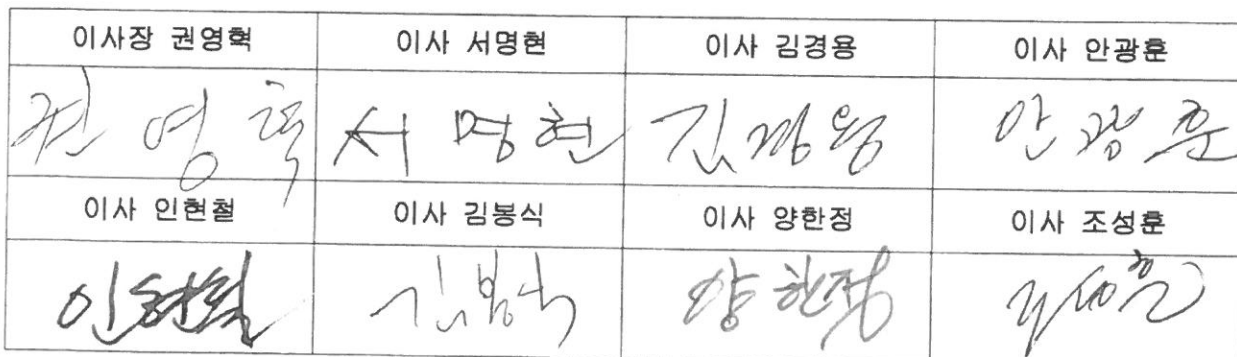 이사장 권영혁 이사 서명현 이사 김경용 이사 안광훈
권영혁 서명현 김경용 안광훈
이사 인현철 이사 김봉식 이사 양한정 이사 조성훈
인현철 김봉식 양한정 조성훈